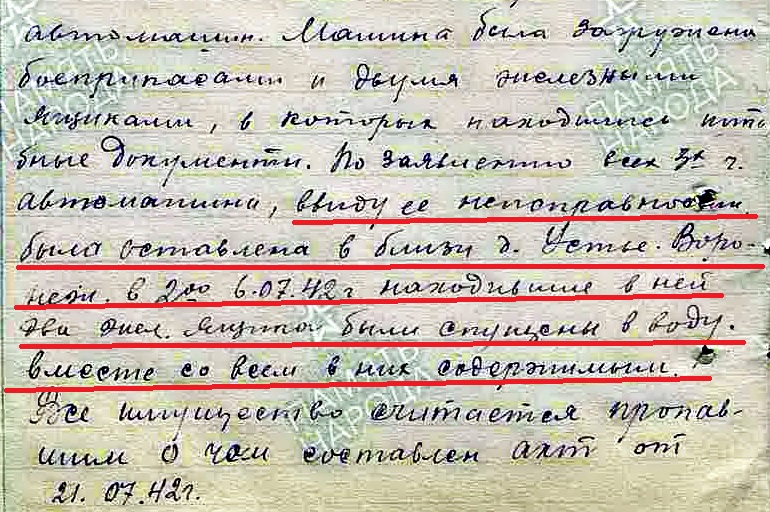 автомашин. Машина была загружена
боеприпасами и двумя железными
ящиками, в которых находились штаб
бные документы. По заявлению всех 3х г.
автомашина, ввиду ее неисправности
была оставлена в близи д. Устье. Воро-
неж. в 2 00 6.07.42 г находившие в ней
два жел. ящика были спущены в воду.
вместе со всем в них содержимым.
Все имущество считается пропав-
шим о чем составлен акт от
21. 07.42г.
ПАМЯТЬ НАРОДА
ПАМЯТЬ НАРОДА
ПАМЯТЬ НАРОДА
ПАМЯТЬ НАРОДА